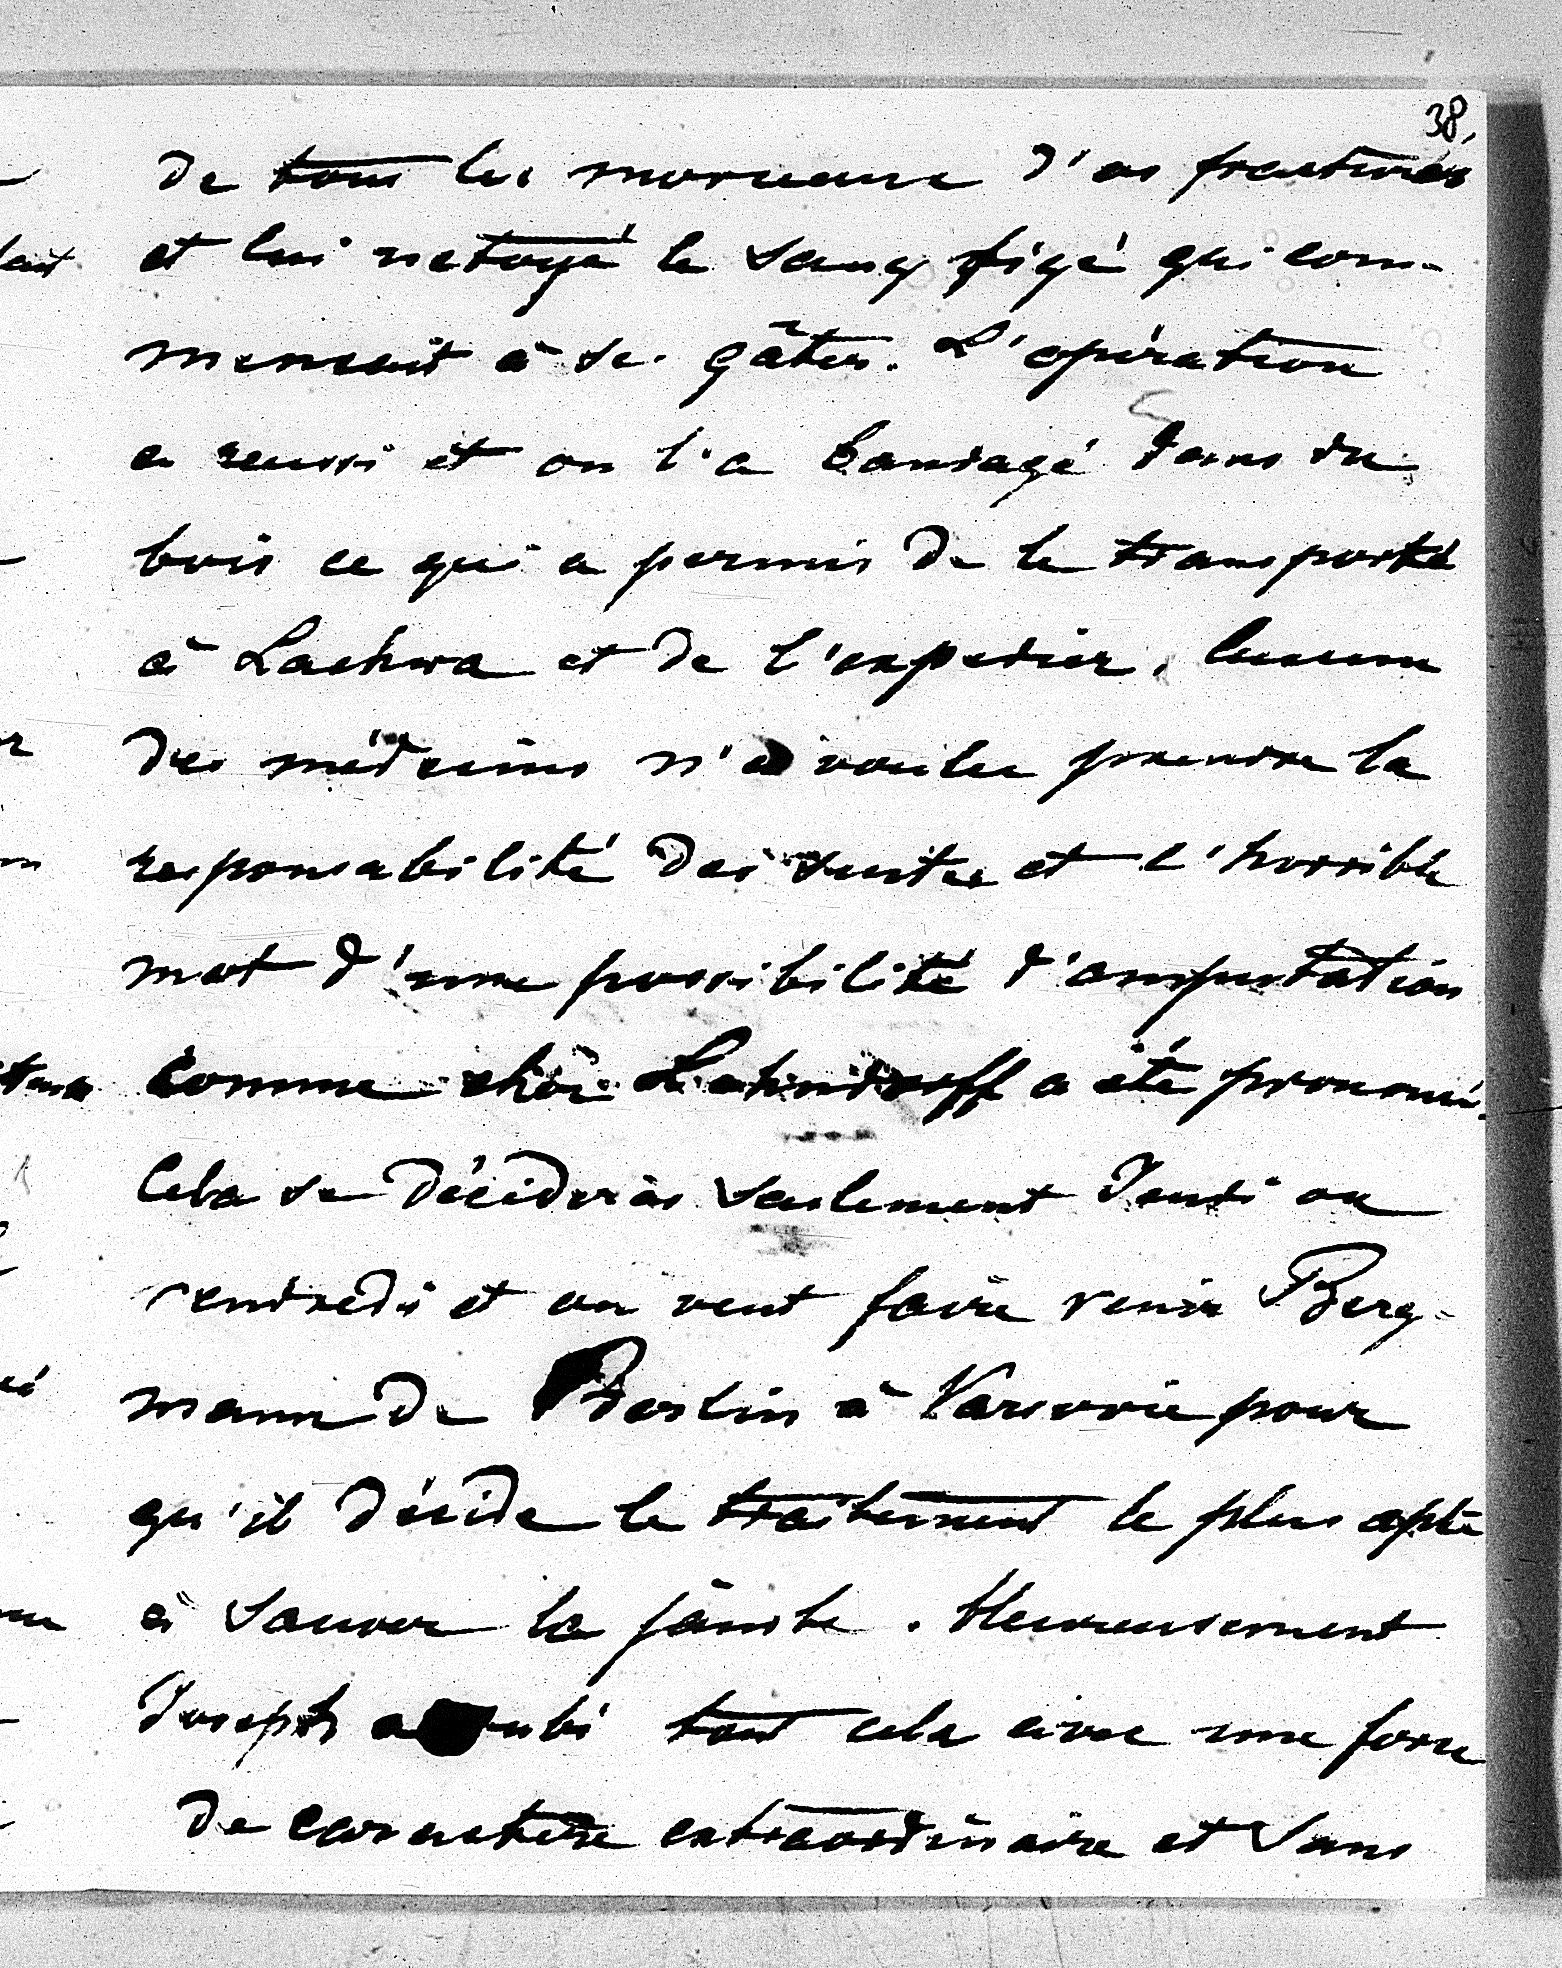 38.
de tous les morceaux d'os fracturés
et lui netoyé le sang figé qui com-
mencait à se gâter. L'opération
a reussi et on l'a bandagé dans du
bois ce qui a permis de le transporté
à Lachwa et de l'expedier. Aucun
des médecins n'a voulu prendre la
responsabilité des suites et l'horrible
mot d'une possibilité d'amputation
comme chez Lehndorff a été prononcé.
Cela se décideras seulement Jeudi ou
vendredi et on veut faire venir Berg-
mann de Berlin à Varsovie pour
qu'il décide le traitement le plus apte
à sauver la jambe. Heureusement
Joseph a subi tout cela avec une force
de caractere extraordinaire et sans